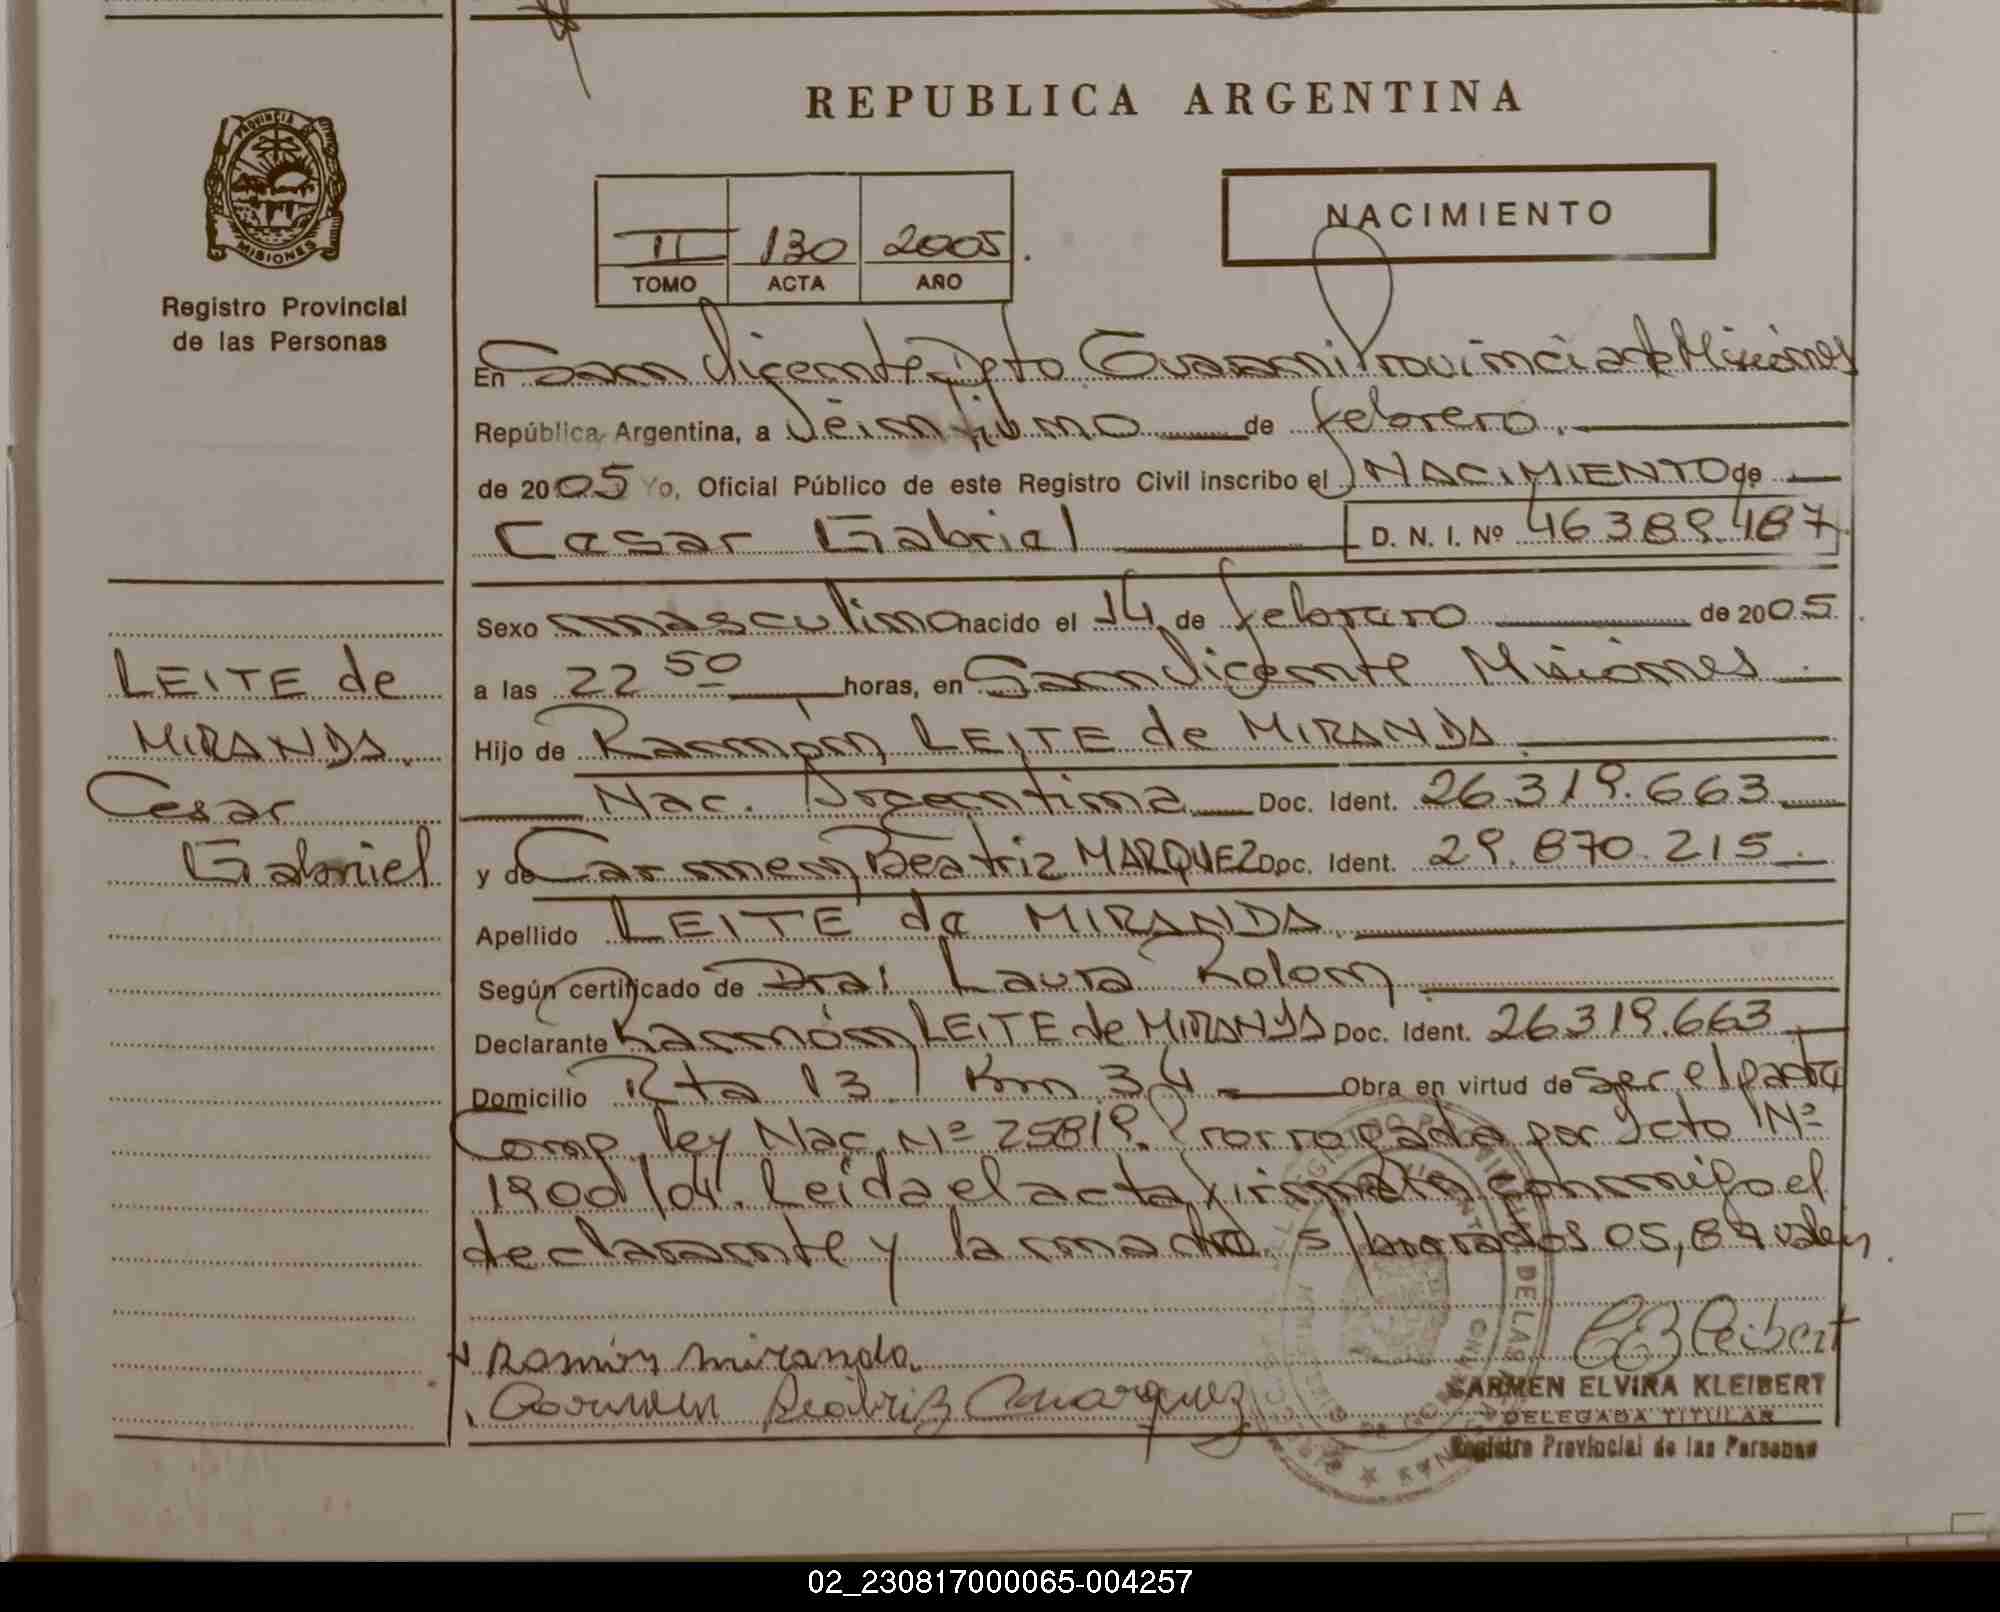 REPUBLICA ARGENTINA
PROVINCIA DE
MISIONES
Registro Provincial
de las Personas
NACIMIENTO
II 130 2005
TOMO ACTA AÑO
En San Vicente Dpto Guaraní Provincia de Misiones
República Argentina, a veintiuno de febrero.
de 2005 Yo, Oficial Público de este Registro Civil inscribo el NACIMIENTO de
Cesar Gabriel D. N. I. Nº 46.389.187
Sexo masculino nacido el 14 de febrero de 2005
a las 22 50 horas, en San Vicente Misiones
Hijo de Ramón LEITE de MIRANDA
Nac. Argentina Doc. Ident. 26.319.663
y de Carmen Beatriz MARQUEZ Doc. Ident. 29.870.215
Apellido LEITE de MIRANDA
Según certificado de Dra; Laura Rolon
Declarante Ramón LEITE de MIRANDA Doc. Ident. 26.319.663
Domicilio Rta 13 Km 34 Obra en virtud de ser el padre
Comp. ley Nac. Nº 25819. Prorrogada por Dcto Nº
1900/04. Leida el acta, firman conmigo el
declarante y la madre. s/borrados 05, 87 valen
LEITE de
MIRANDA.
Cesar
Gabriel
Ramón miranda.
Carmen Beatriz Marquez
CEKleibert
CARMEN ELVIRA KLEIBERT
DELEGADA TITULAR
Registro Provincial de las Personas
02_230817000065-004257